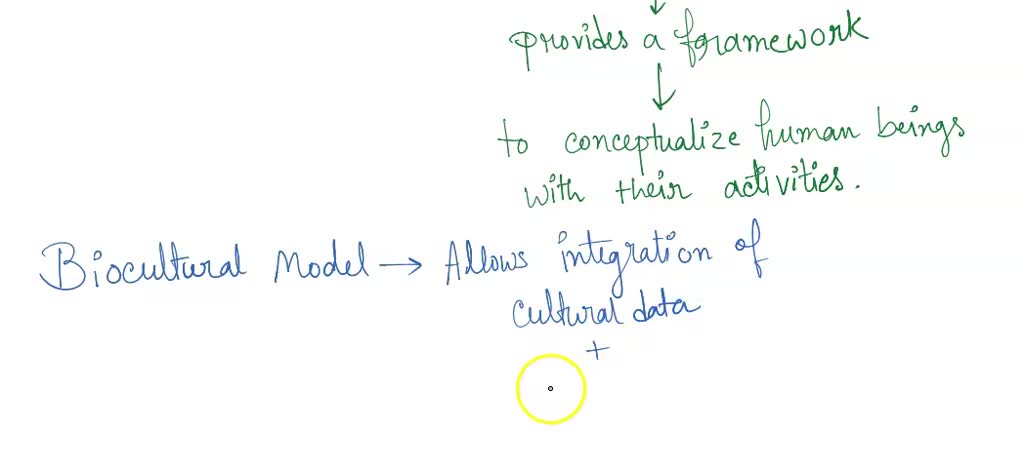 provides a framework
to conceptualize human beings
with their activities.
Biocultural Model → Allows integration of
cultural data
+